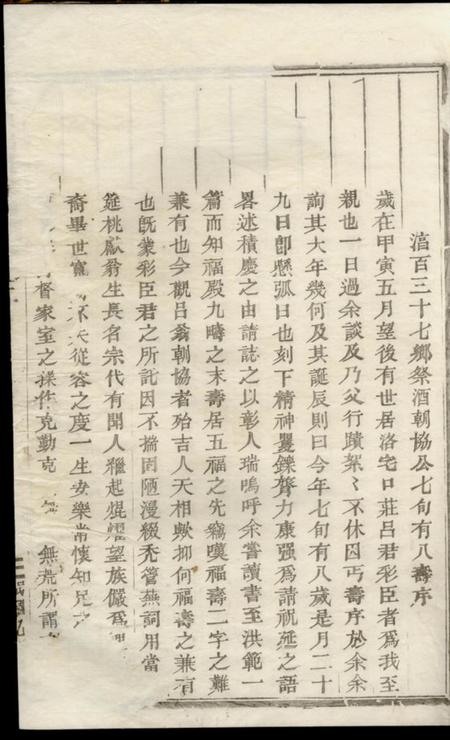 涪百三十七鄉祭酒朝協公七旬有八壽序
歲在甲寅五月望後有世居洛宅口莊呂君彩臣者爲我至
親也一日過余談及乃父行蹟絮〻不休因丐壽序於余余
詢其大年幾何及其誕辰則曰今年七旬有八歲是月二十
九日卽懸弧日也刻下精神矍鑠膂力康强爲請祝延之語
畧述積慶之由請誌之以彰人瑞嗚呼余嘗讀書至洪範一
篇而知福殿九疇之末壽居五福之先竊嘆福壽二字之難
兼有也今觀呂翁朝協者殆吉人天相歟抑何福壽之兼有
也旣蒙彩臣君之所託因不揣固陋漫綴禿管蕪詞用當
筵桃獻翁生長名宗代有聞人雞起焜燿望族儼爲
裔畢世 不 從容之度一生安樂常懷知足
督家室之操作克勤克 無 所謂